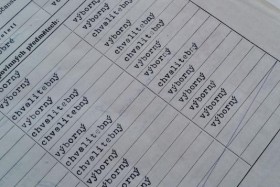 povinných předmětech:
výborný
výborný
chvalitebný
chvalitebný
výborný
výborný
chvalitebný
chvalitebný
chvalitebný
výborný
výborný
výborný
chvalitebný
výborný
chvalitebný
chvalitebný
výborný
výborný
výborný
výborný